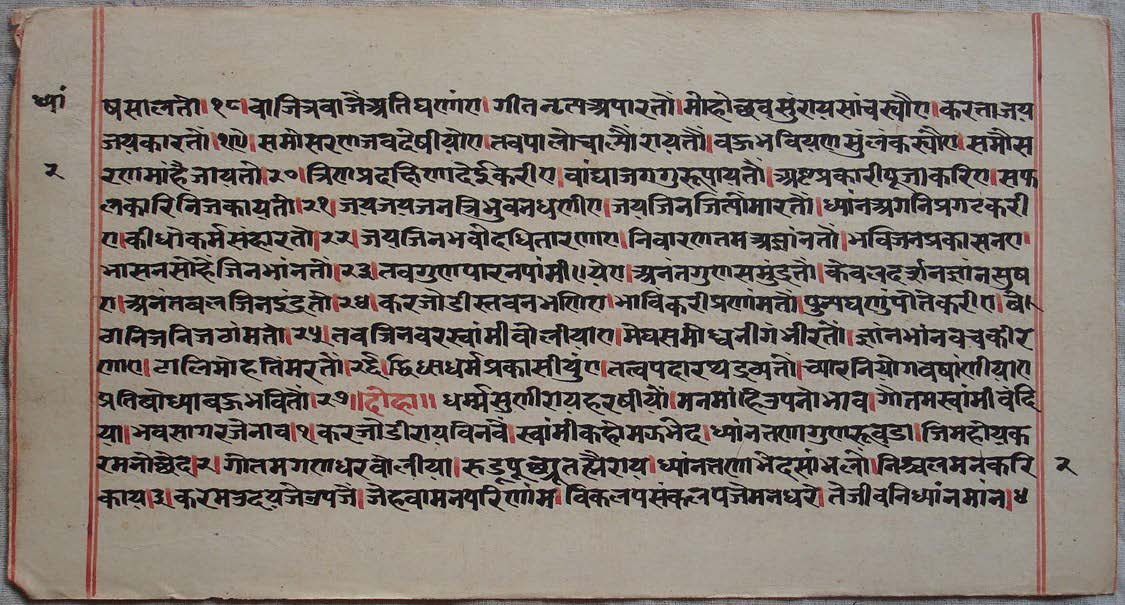 ध्यां
षसालतो।१८।वाजित्रवाजैअतिघणांए।गीतनृत्यअपारतो।मोहोछवसुंरायसांचर्‍यौए।करताजय
जयकारतो।१९।समोसरणजवदेषीयोए।तवपालोचाल्योरायतो।वहुभवियणसुंलंकर्‍यौए।समोस
२
रणमांहैजायतो।२०।त्रिणप्रदक्षिणादेईकरीए।वांद्याजगगुरूपायतो।अष्टप्रकारीपूजाकरिए।सफ
लकारिनिजकायतो।२१।जयजयजनत्रिभुवनधणीए।जयजिनजित्योमारतो।ध्यांनअगनिप्रगटकरी
ए।कीधोकर्मसंहारतो।२२।जयजिनभवोदधितारणाए।निवारणतमअज्ञांनतो।भविजनप्रकासनए।
भासनसोहैजिनभांनतो।२३।तवगुणपारनपांमीयेए।अनंतगुणसमुंद्रतो।केवलदर्शनज्ञांनसुष
ए।अनंतबलजिनइंद्रतो।२४।करजोडीस्तवनभणिए।भाविकरीप्रणांमतो।पुन्यघणुंपोतेकरीए।वे
गनिजनिजठांमतो।२५।तवजिनवरस्वांमीवोलीयाए।मेघसमीध्वनीगंभीरतो।ज्ञांनभांनवचकीर
णाए।टालिमोहतिमरतो।२६।द्विधाधर्मप्रकासीयुंए।तत्वपदारथद्रव्यतो।च्यारनियोगवषांणीयाए
प्रतिबोध्याबहुभवितो।२७॥दोहा॥धर्म्मसुणीरायहरषीयो।मनमांहिउपनोभाव।गौतमस्वांमीवंदि
या।भवसागरजेनाव।१।करजोडीरायविनवै।स्वांमीकहोमझभेद।ध्यांनतणागुणरूवडा।जिमहोयक
रमनोछेद।२।गोतमगणधरवोलीया।रूडूपूछ्यूतह्मेराय।ध्यांनतणाभेदसांभलो।निश्चलमनकरि
२
काय।३।करमउदयजेउपजै।जेहवामनपरिणांम।विकलपसंकलपजेमनधरे।तेजीवनिध्यांनमांन।४